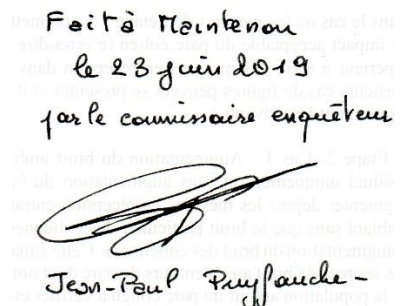 Fait à Maintenon
le 23 juin 2019
par le commissaire enquêteur
Jean-Paul